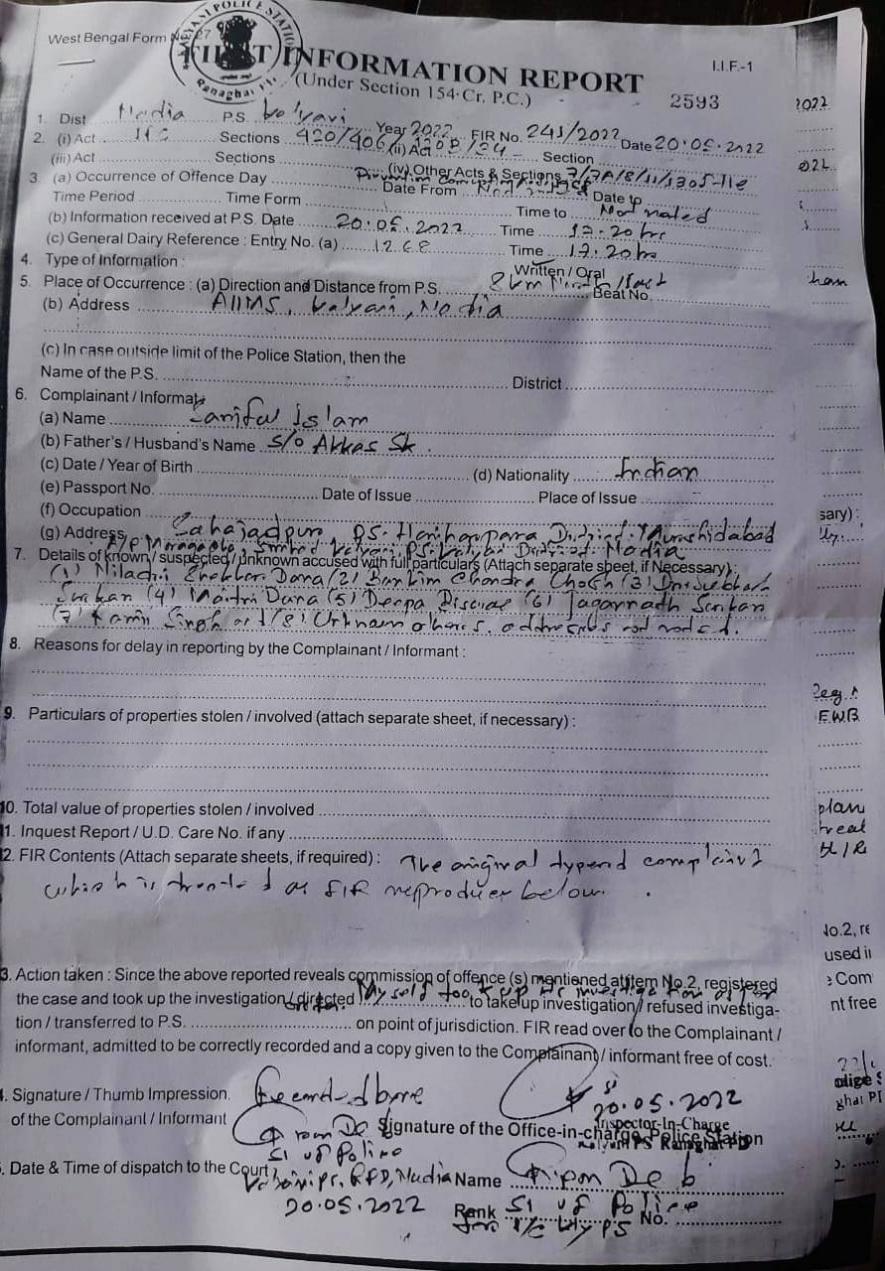 West Bengal Form No. 27
KALYANI POLICE STATION
Ranaghat
I.I.F.-1
FIRST INFORMATION REPORT
(Under Section 154 Cr. P.C.)
2593
1. Dist Nadia P.S. Kalyani Year 2022 FIR No. 241/2022 Date 20.05.2022
2. (i) Act IPC Sections 420/406/120B/34 (ii) Act Section
(iii) Act Sections (iv) Other Acts & Sections 7/7A/8/11/13 of
3. (a) Occurrence of Offence Day Date From Date to
Time Period Time Form Time to Not noted
(b) Information received at P.S. Date 20.05.2022 Time 17.20 hrs
(c) General Dairy Reference : Entry No. (a) 1268 Time 17.20 hrs
4. Type of Information : Written / Oral
5. Place of Occurrence : (a) Direction and Distance from P.S. 8 km North/East Beat No.
(b) Address AIIMS, Kalyani, Nadia
(c) In case outside limit of the Police Station, then the
Name of the P.S. District
6. Complainant / Informat
(a) Name Sariful Islam
(b) Father's / Husband's Name S/o Akkas Sk.
(c) Date / Year of Birth (d) Nationality Indian
(e) Passport No. Date of Issue Place of Issue
(f) Occupation
(g) Address Sahajadpur, PS- Hariharpara District- Murshidabad
Kalyani PS- Kalyani District- Nadia
7. Details of known / suspected / unknown accused with full particulars (Attach separate sheet, if Necessary) :
(1) Niladri Shekhar Dana (2) Bankim Chandra Ghosh (3) Dr. Subhash
Sarkar (4) Maitri Dana (5) Deepa Biswas (6) Jagannath Sarkar
(7) Singh and (8) Unknown others, addresses not noted.
8. Reasons for delay in reporting by the Complainant / Informant :
9. Particulars of properties stolen / involved (attach separate sheet, if necessary) :
10. Total value of properties stolen / involved
11. Inquest Report / U.D. Care No. if any
12. FIR Contents (Attach separate sheets, if required) : The original typed complaint
which is treated as FIR reproduced below.
3. Action taken : Since the above reported reveals commission of offence (s) mentioned at Item No.2, registered
the case and took up the investigation / directed to take up investigation / refused investiga-
tion / transferred to P.S. on point of jurisdiction. FIR read over to the Complainant /
informant, admitted to be correctly recorded and a copy given to the Complainant / informant free of cost.
Signature / Thumb Impression Recorded by me SI 20.05.2022
of the Complainant / Informant Signature of the Office-in-charge, Police Station
Inspector-In-Charge
Kalyani PS Ranaghat PD
SI of Police
Date & Time of dispatch to the Court Kalyani PS, RPD, Nadia Name Ripon Deb
20.05.2022 Rank SI of Police No.
for I/C Kly PS